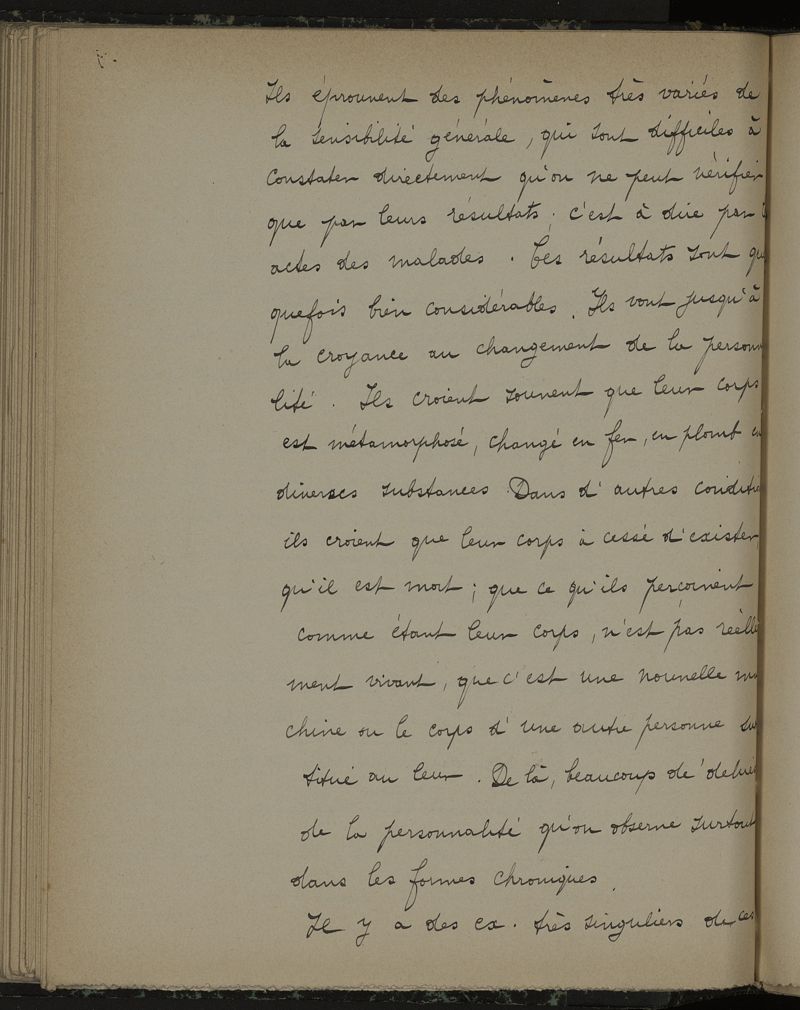 Ils éprouvent des phénomènes très variés de
la sensibilité générale, qui sont difficiles à
constater directement qu'on ne peut vérifier
que par leurs résultats ; c'est à dire par
actes des malades. Ces résultats sont qu
quefois bien considérables. Ils vont jusqu'à
la croyance au changement de la personn
lité. Ils croient souvent que leur corps
est métamorphosé, changé en fer, en plomb en
diverses substances. Dans d'autres conditio
ils croient que leur corps à cessé d'exister,
qu'il est mort ; que ce qu'ils perçoivent
comme étant leur corps, n'est pas réelle
ment vivant, que c'est une nouvelle ma
chine ou le corps d'une autre personne sub
titué au leur. De là, beaucoup de délires
de la personnalité qu'on observe surtout
dans les formes chroniques.
Il y a des ex. très singuliers de ces